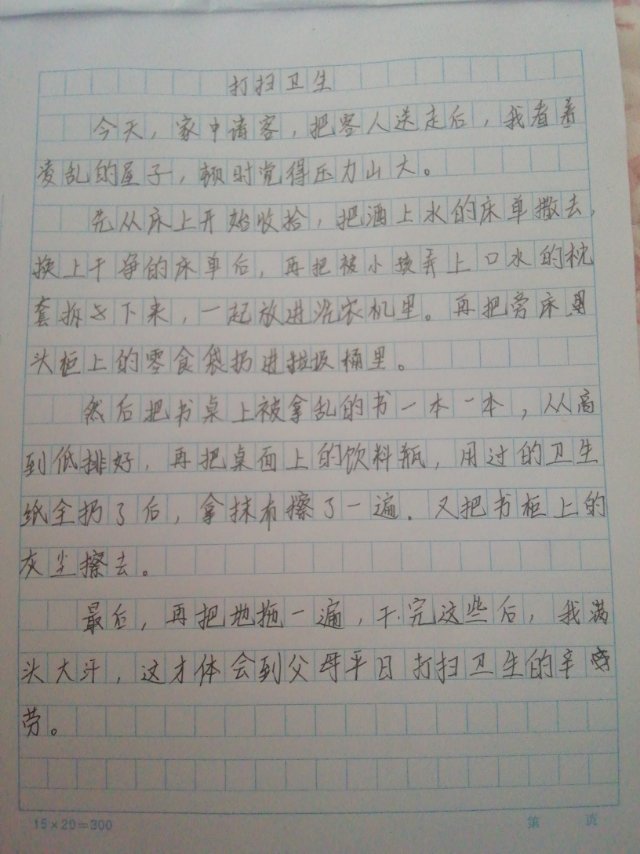 打扫卫生
今天，家中请客，把客人送走后，我看着
凌乱的屋子，顿时觉得压力山大。
先从床上开始收拾，把洒上水的床单撤去，
换上干净的床单后，再把被小孩弄上口水的枕
套拆下来，一起放进洗衣机里。再把旁床
头柜上的零食袋扔进垃圾桶里。
然后把书桌上被拿乱的书一本一本，从高
到低排好，再把桌面上的饮料瓶，用过的卫生
纸全扔了后，拿抹布擦了一遍．又把书柜上的
灰尘擦去。
最后，再把地拖一遍，干完这些后，我满
头大汗，这才体会到父母平日打扫卫生的辛
劳。
15×20=300
第 页